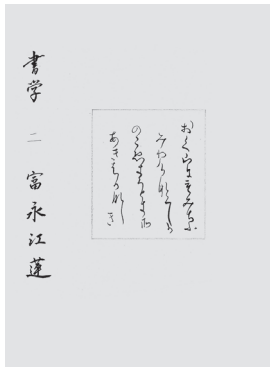 おくやまにもみちふ
みわけなくしか
のこゑきくときそ
あきはかなしき
書学 二 富永江蓮